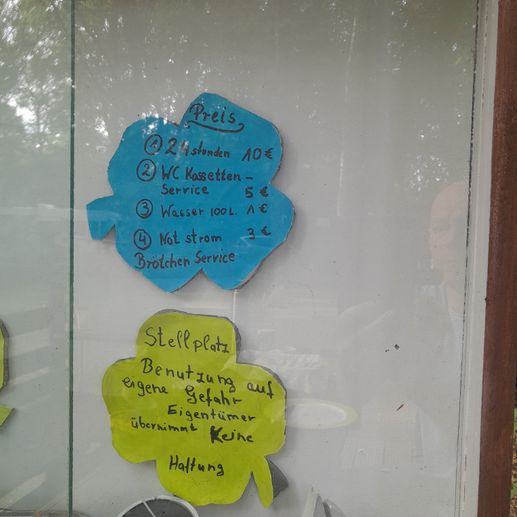 Preis
① 24 stunden 10 €
② WC Kassetten-
Service 5 €
③ Wasser 100 L. 1 €
④ Not strom 3 €
Brötchen Service
Stellplatz
Benutzung auf
eigene Gefahr
Eigentümer
übernimmt Keine
Haftung